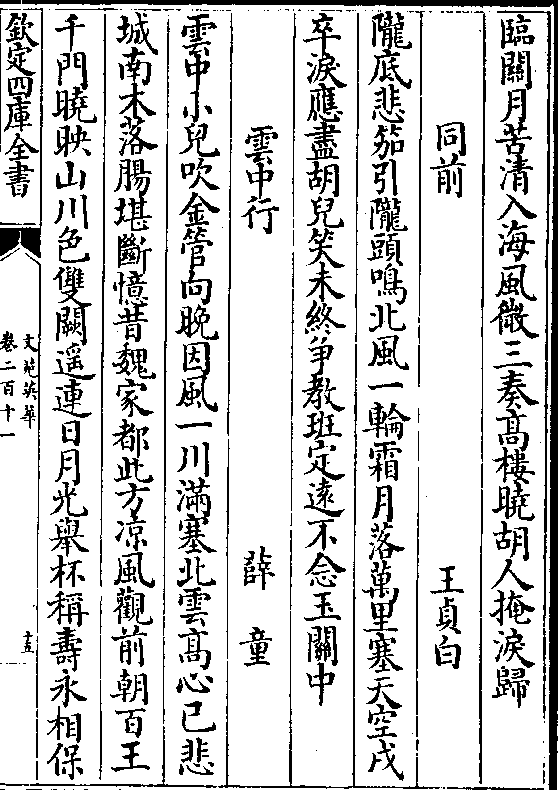 臨關月苦清入海風微三奏髙樓曉胡人掩淚歸
同前 王貞白
隴底悲笳引隴頭鳴北風一輪霜月落萬里塞天空戍
卒淚應盡胡兒笑未終爭教班定遠不念玉關中
雲中行 薛童
雲中小兒吹金管向晚因風一川滿塞北雲髙心已悲
城南木落腸堪斷憶昔魏家都此方凉風觀前朝百王
千門曉映山川色雙闕遥連日月光舉杯稱壽永相保
欽定四庫全書
文苑英華
卷二百十一
十五